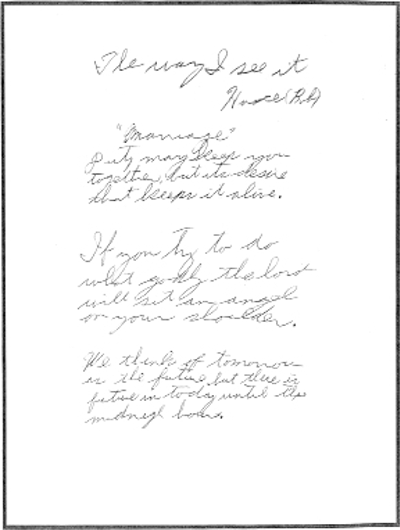 The way I see it
"Marriage"
Duty may keep you
together, but its desire
that keeps it alive.
If you try to do
what godly the lord
will set an angel
on your shoulder.
We think of tomorrow
is the future, but there is
future in today until the
midnegh hour.